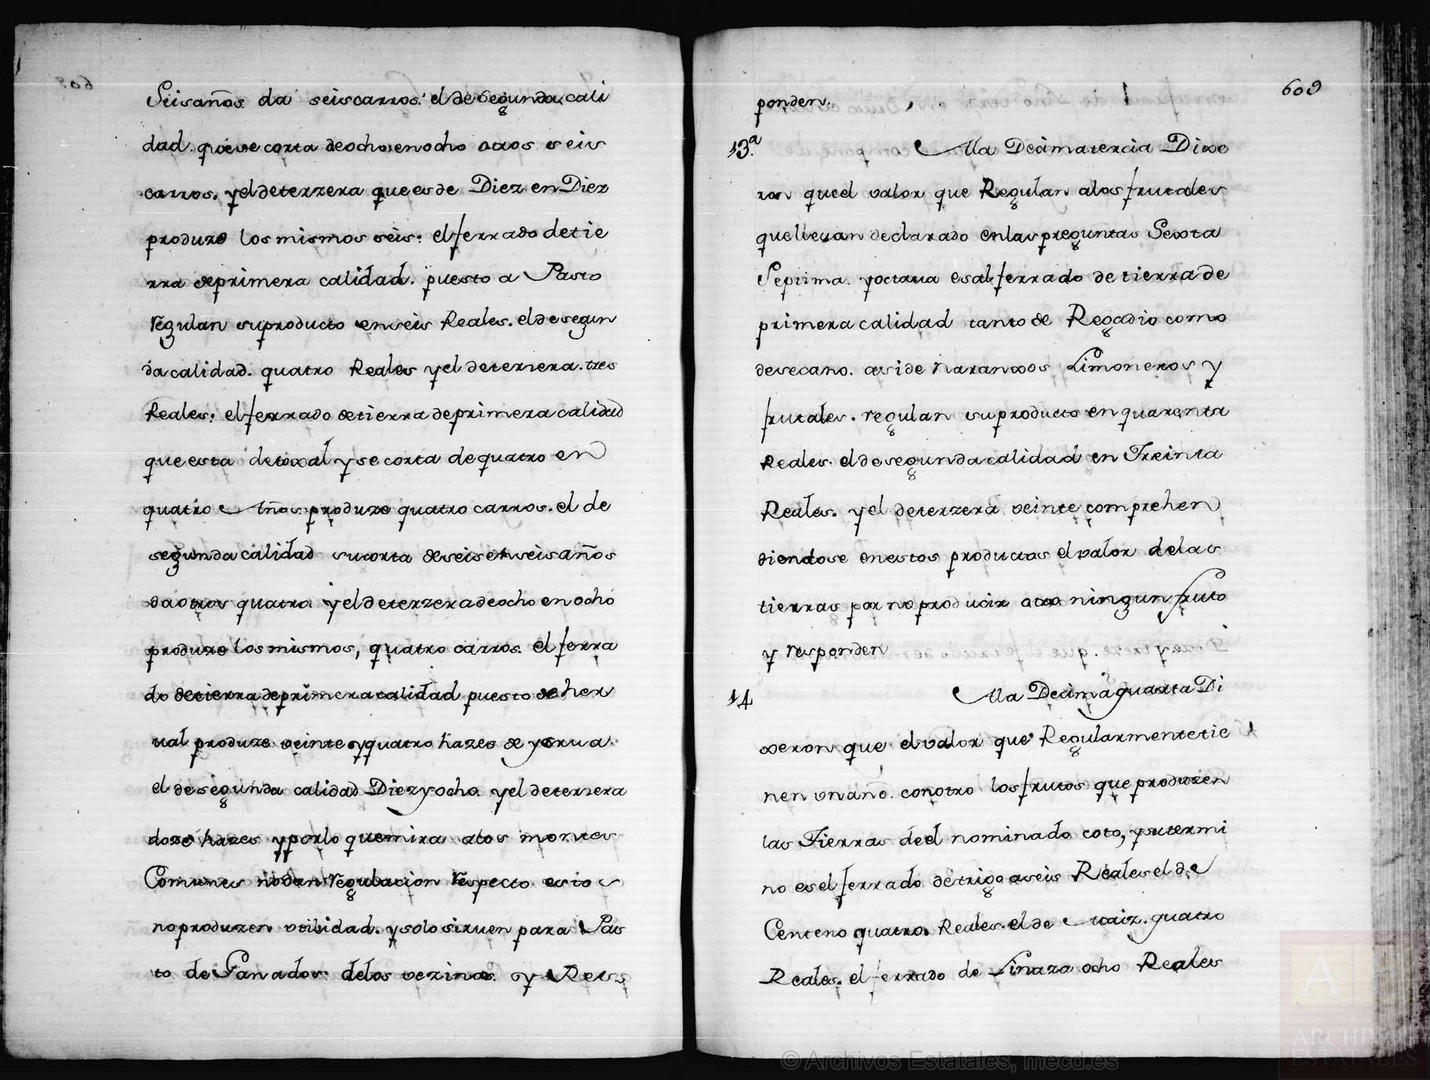 Seisaños da seiscarros. el de Segunda, cali
dad. que se corta de ocho en ocho años seis
carros. y el de terzera que es de Diez en Diez
produze los mismos seis: el ferrado de tie
rra de primera calidad. puesto a Pasto
regulan su producto en seis Reales. el de segun
da calidad. quatro Reales y el de terzera. tres
Reales: el ferrado de tierra de primera calidad
que esta de toxal y se corta de quatro en
quatro Años produze quatro carros. el de
segunda calidad su corta de seis en seis años
da otros quatro y el de terzera de ocho en ocho
produze los mismos, quatro carros. el ferra
do de tierra de primera calidad puesto de her
val produze veinte y quatro hazes de yerva.
el de segunda calidad Diez y ocho. y el de terzera
doze hazes y por lo que mira a los montes
Comunes no dan regulacion respecto esto
no produzen vtilidad. y solo sirven para Pas
to de Ganados de los vezinos y Res
609
ponden.
13.ª A la Decimatercia Dixe
ron que el valor que Regulan a los frutales
que llevan declarado en las preguntas Sexta
Septima. y octava es al ferrado de tierra de
primera calidad tanto de Regadio como
de secano. asi de Naranxos Limoneros y
frutales. regulan su producto en quarenta
Reales. el de segunda calidad en Treinta
Reales. y el de terzera veinte comprehen
diendose en estos productos el valor de las
tierras por no produzir otro ningun fruto
y responden
14 A la Decima quarta Di
xeron que el valor que Regularmente tie
nen vn año. con otro los frutos que produzen
las Tierras de el nominado coto, y su termi
no es el ferrado de trigo a seis Reales el de
Centeno quatro Reales. el de Maiz. quatro
Reales. el ferrado de Linaza ocho Reales
© Archivos Estatales, mecd.es
ARCHIVOS
ESTATALES